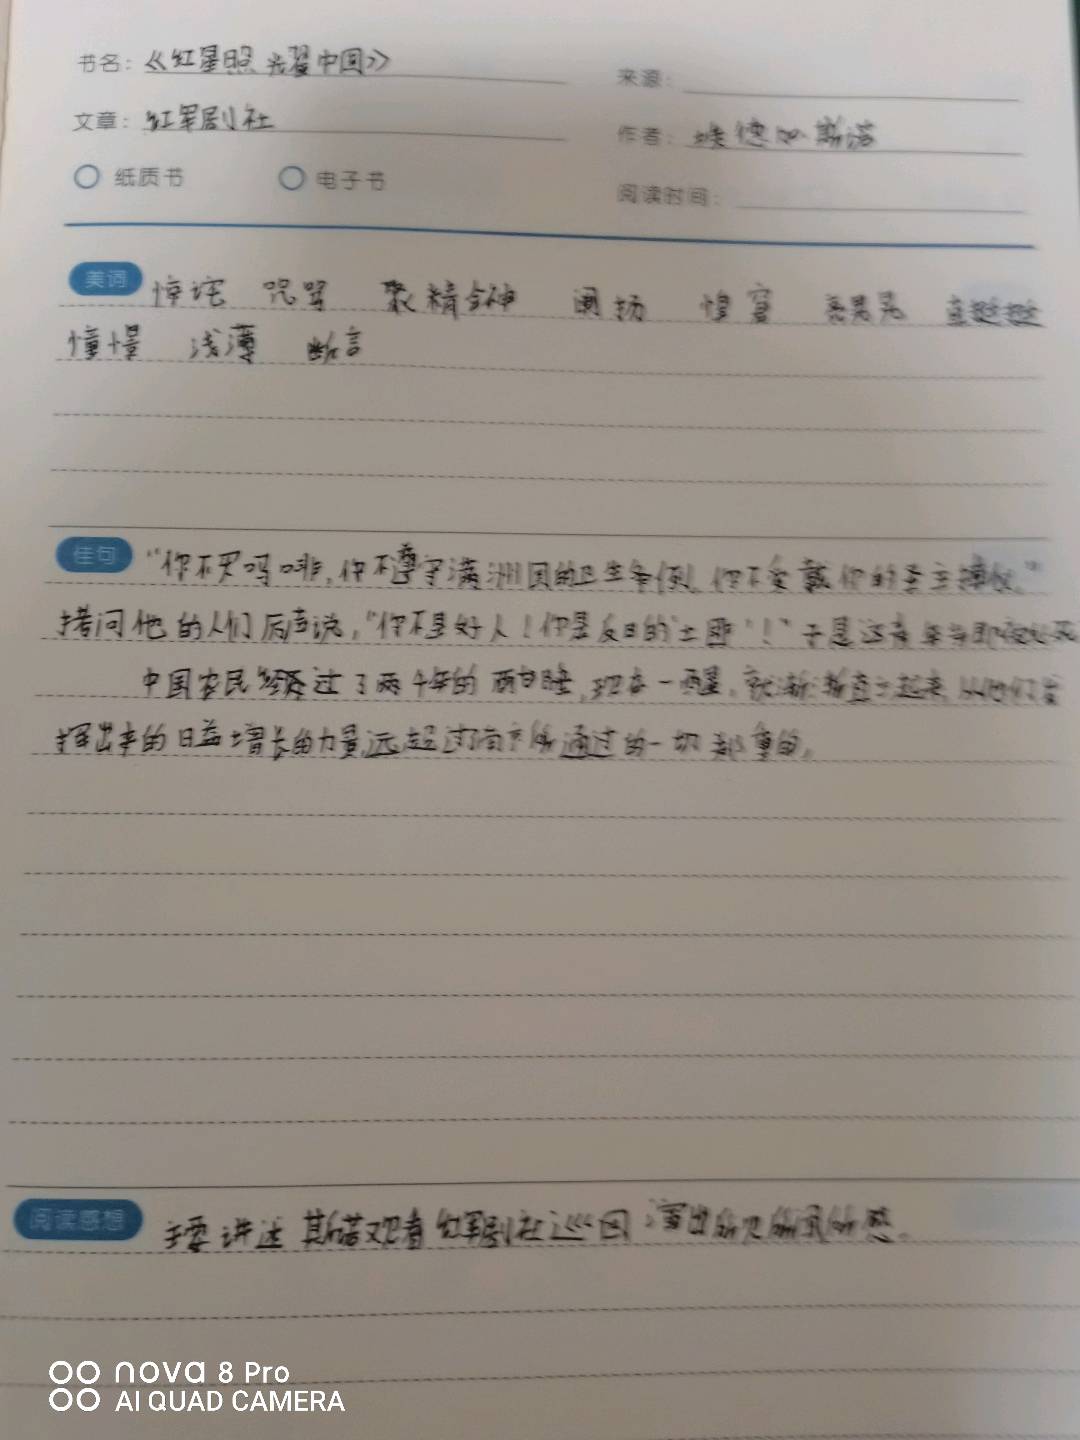 书名：《红星照耀中国》
来源：
文章：红军剧社
作者：埃德加斯诺
纸质书 电子书
阅读时间：
美词 惊诧 咒骂 聚精会神 阐扬 惶窘 直挺挺
憧憬 浅薄 断言
佳句 "你不买吗啡，你不遵守满洲国的卫生条例，你不爱戴你的圣主溥仪。"
拷问他的人们厉声说，"你不是好人！你是反日的'土匪'！"于是这
中国农民经过了两千年的 睡，现在一醒，就渐渐直立起来，从他们发
挥出来的日益增长的力量，远超过 通过的一切 重的。
阅读感想 主要讲述斯诺观看红军剧社巡回演出所见所闻所感。
nova 8 Pro
AI QUAD CAMERA